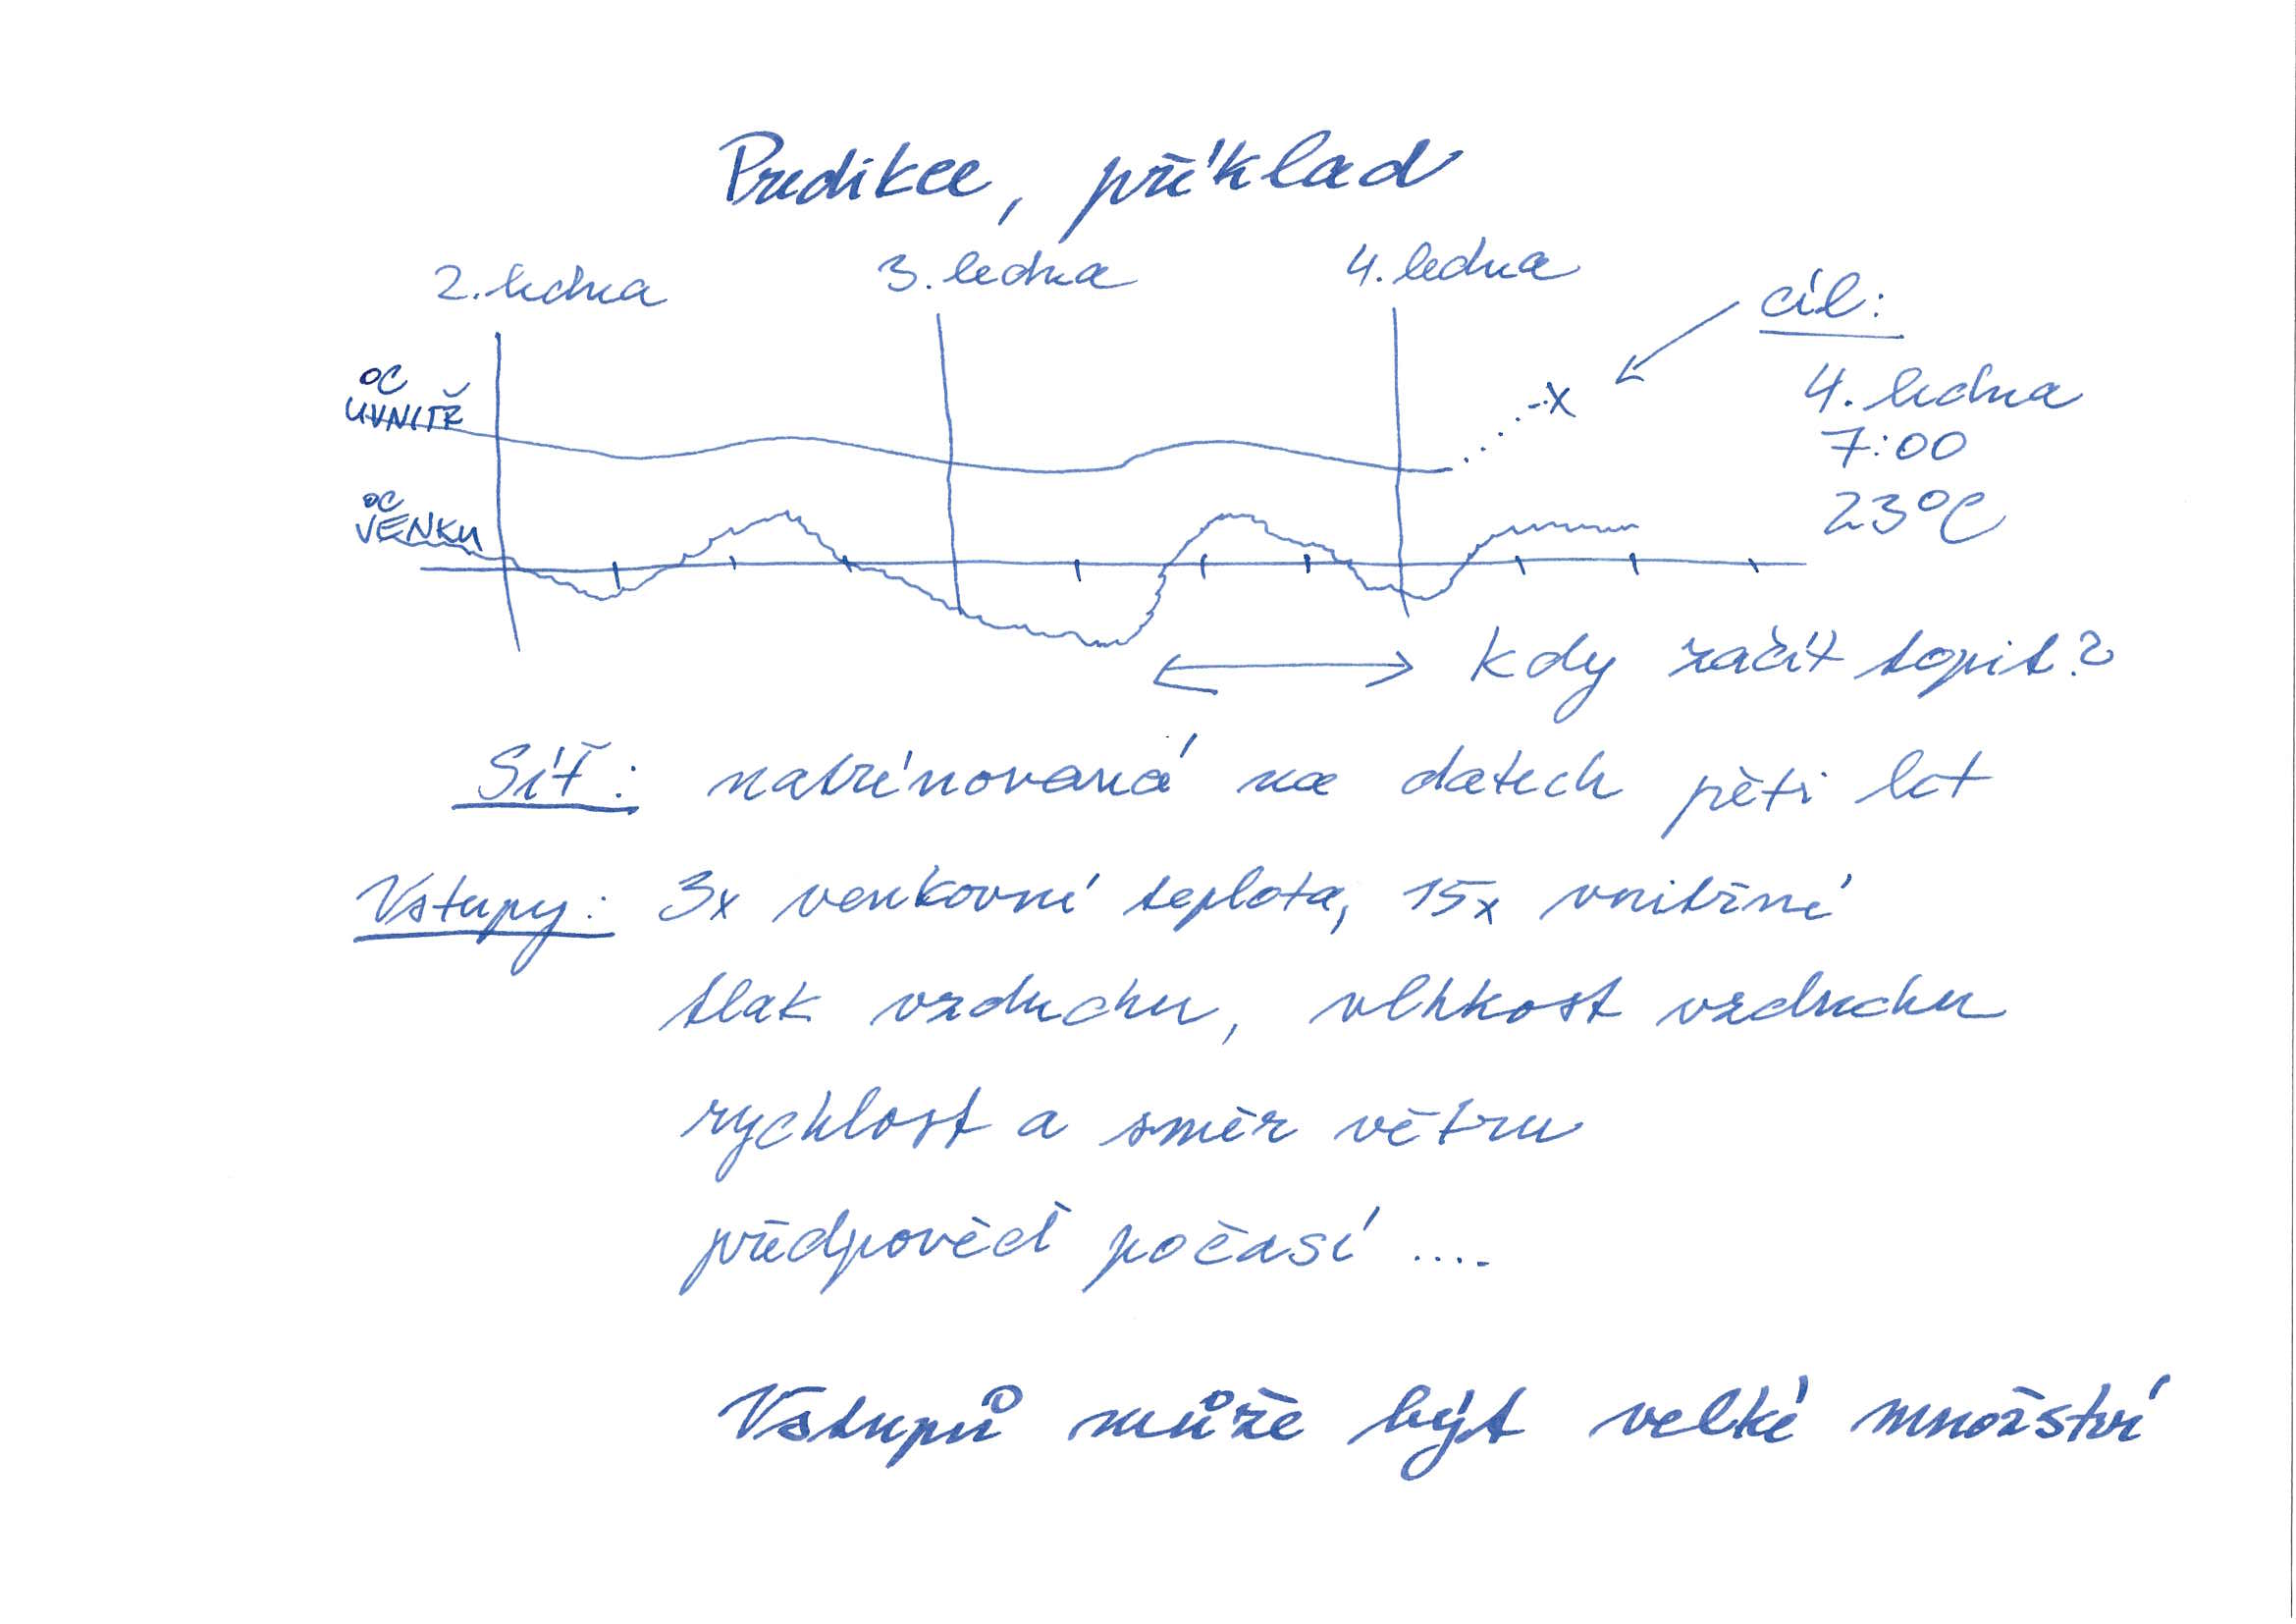 Predikce, příklad
2. ledna
3. ledna
4. ledna
cíl:
°C
UVNITŘ
4. ledna
7:00
23°C
°C
VENKU
kdy začít topit?
Síť: natrénovaná na datech pěti let
Vstupy: 3x venkovní teplota, 15x vnitřní
tlak vzduchu, vlhkost vzduchu
rychlost a směr větru
předpověď počasí ....
Vstupů může být velké množství